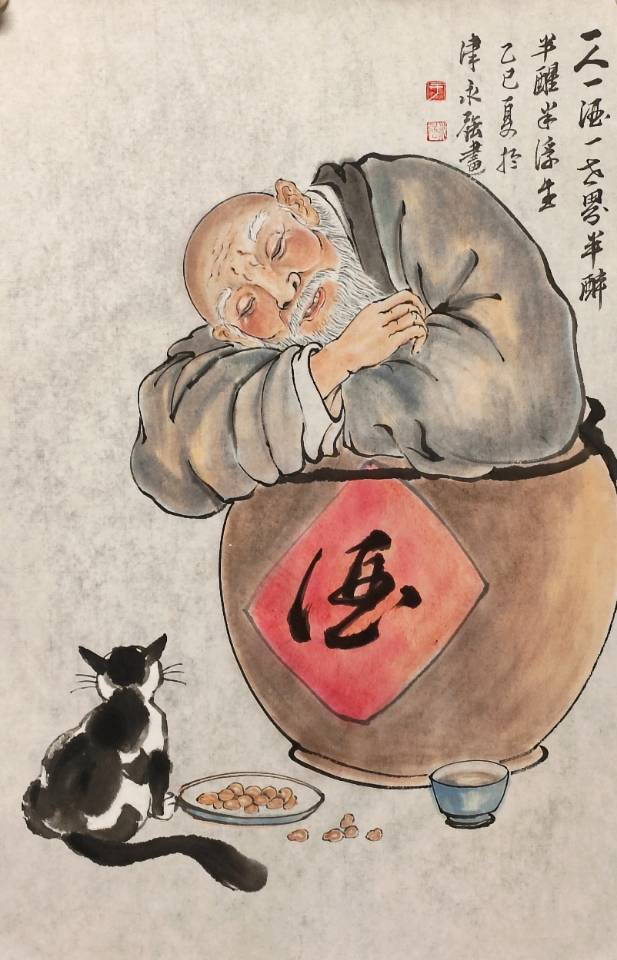 一人一酒一世界半醉
半醒半浮生
乙巳夏於
津永强畫
酒